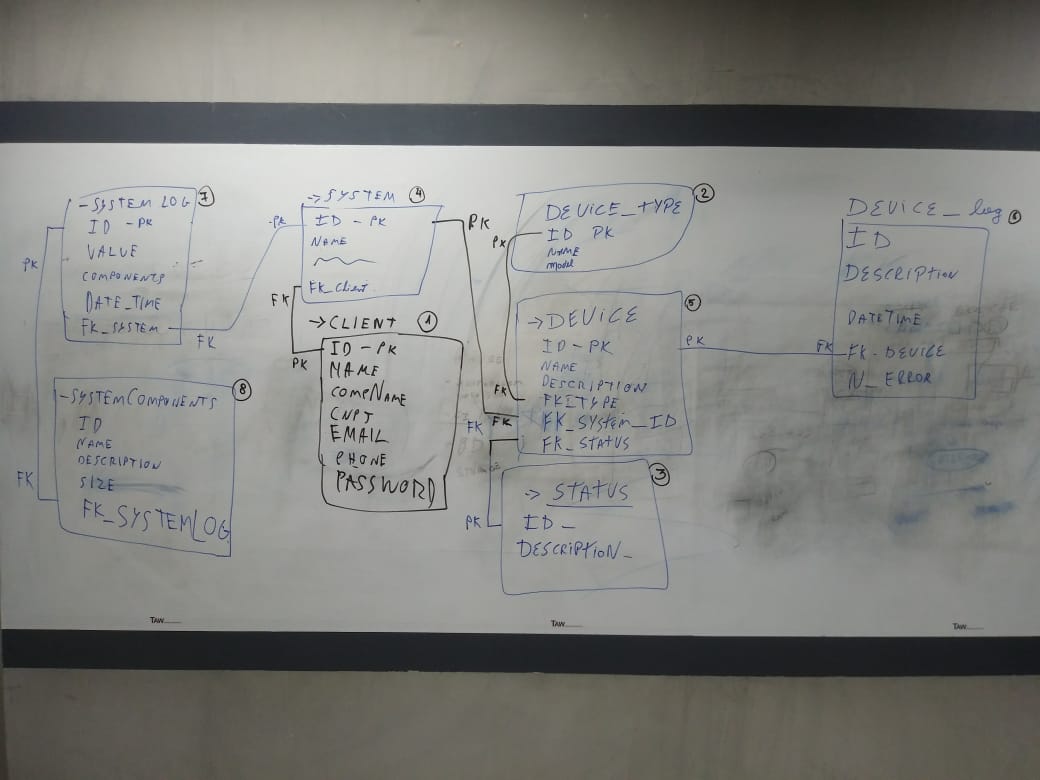 7
- SYSTEM LOG
ID - PK
VALUE
COMPONENTS
DATE_TIME
FK_SYSTEM
PK
FK
FK
8
- SYSTEM COMPONENTS
ID
NAME
DESCRIPTION
SIZE
FK_SYSTEMLOG
4
-> SYSTEM
PK
ID - PK
NAME
FK_Client
PK
FK
PK
1
-> CLIENT
ID - PK
NAME
COMPNAME
EMAIL
PHONE
PASSWORD
2
DEVICE_TYPE
ID PK
NAME
model
PK
FK
5
-> DEVICE
ID - PK
NAME
DESCRIPTION
FK_System_ID
FK_STATUS
FK
FK
PK
3
-> STATUS
ID -
DESCRIPTION -
PK
FK
6
DEVICE_log
ID
DESCRIPTION
DATETIME
FK - DEVICE
N_ERROR
TAW
TAW
TAW